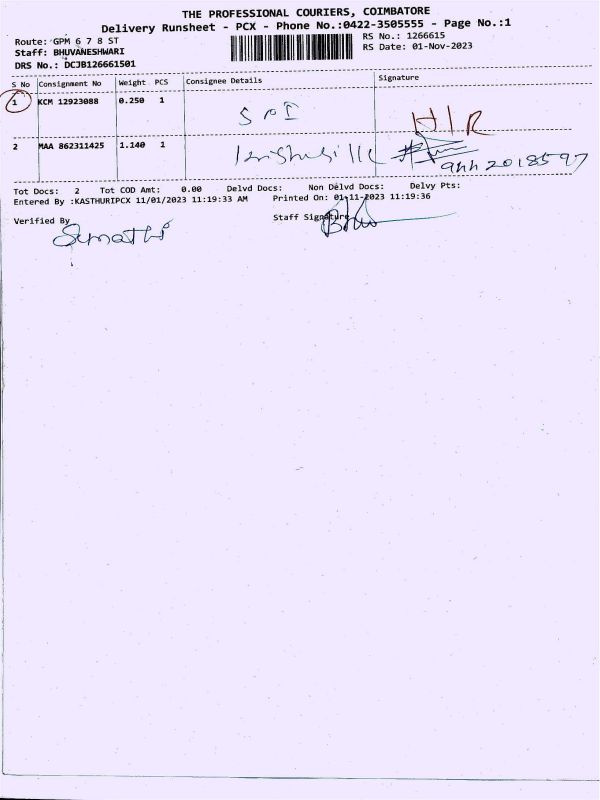 THE PROFESSIONAL COURIERS, COIMBATORE
Delivery Runsheet - PCX - Phone No.:0422-3505555 - Page No.:1
Route: GPM 6 7 8 ST
RS No.: 1266615
Staff: BHUVANESHWARI
RS Date: 01-Nov-2023
DRS No.: DCJB126661501
S No Consignment No Weight PCS Consignee Details Signature
1 KCM 12923088 0.250 1 H/R
2 MAA 862311425 1.140 1
Tot Docs: 2 Tot COD Amt: 0.00 Delvd Docs: Non Delvd Docs: Delvy Pts:
Entered By :KASTHURIPCX 11/01/2023 11:19:33 AM Printed On: 01-11-2023 11:19:36
Verified By Staff Signature
Sumathi